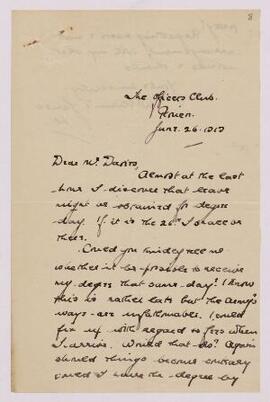 8
The Officers Club.
June. 26. 1917
Dear Mr Davies,
Almost at the last
hour I discover that leave
might be obtained for degree
day. If it is the 20th I shall be
there.
Could you kindly tell me
whether it be possible to receive
my degree that same day? I know
this is rather late but the Army's
ways are unfathomable. I could
fix up with regard to fees when
I arrive. Would that do? Again
should things become contrary
could I have the degree by